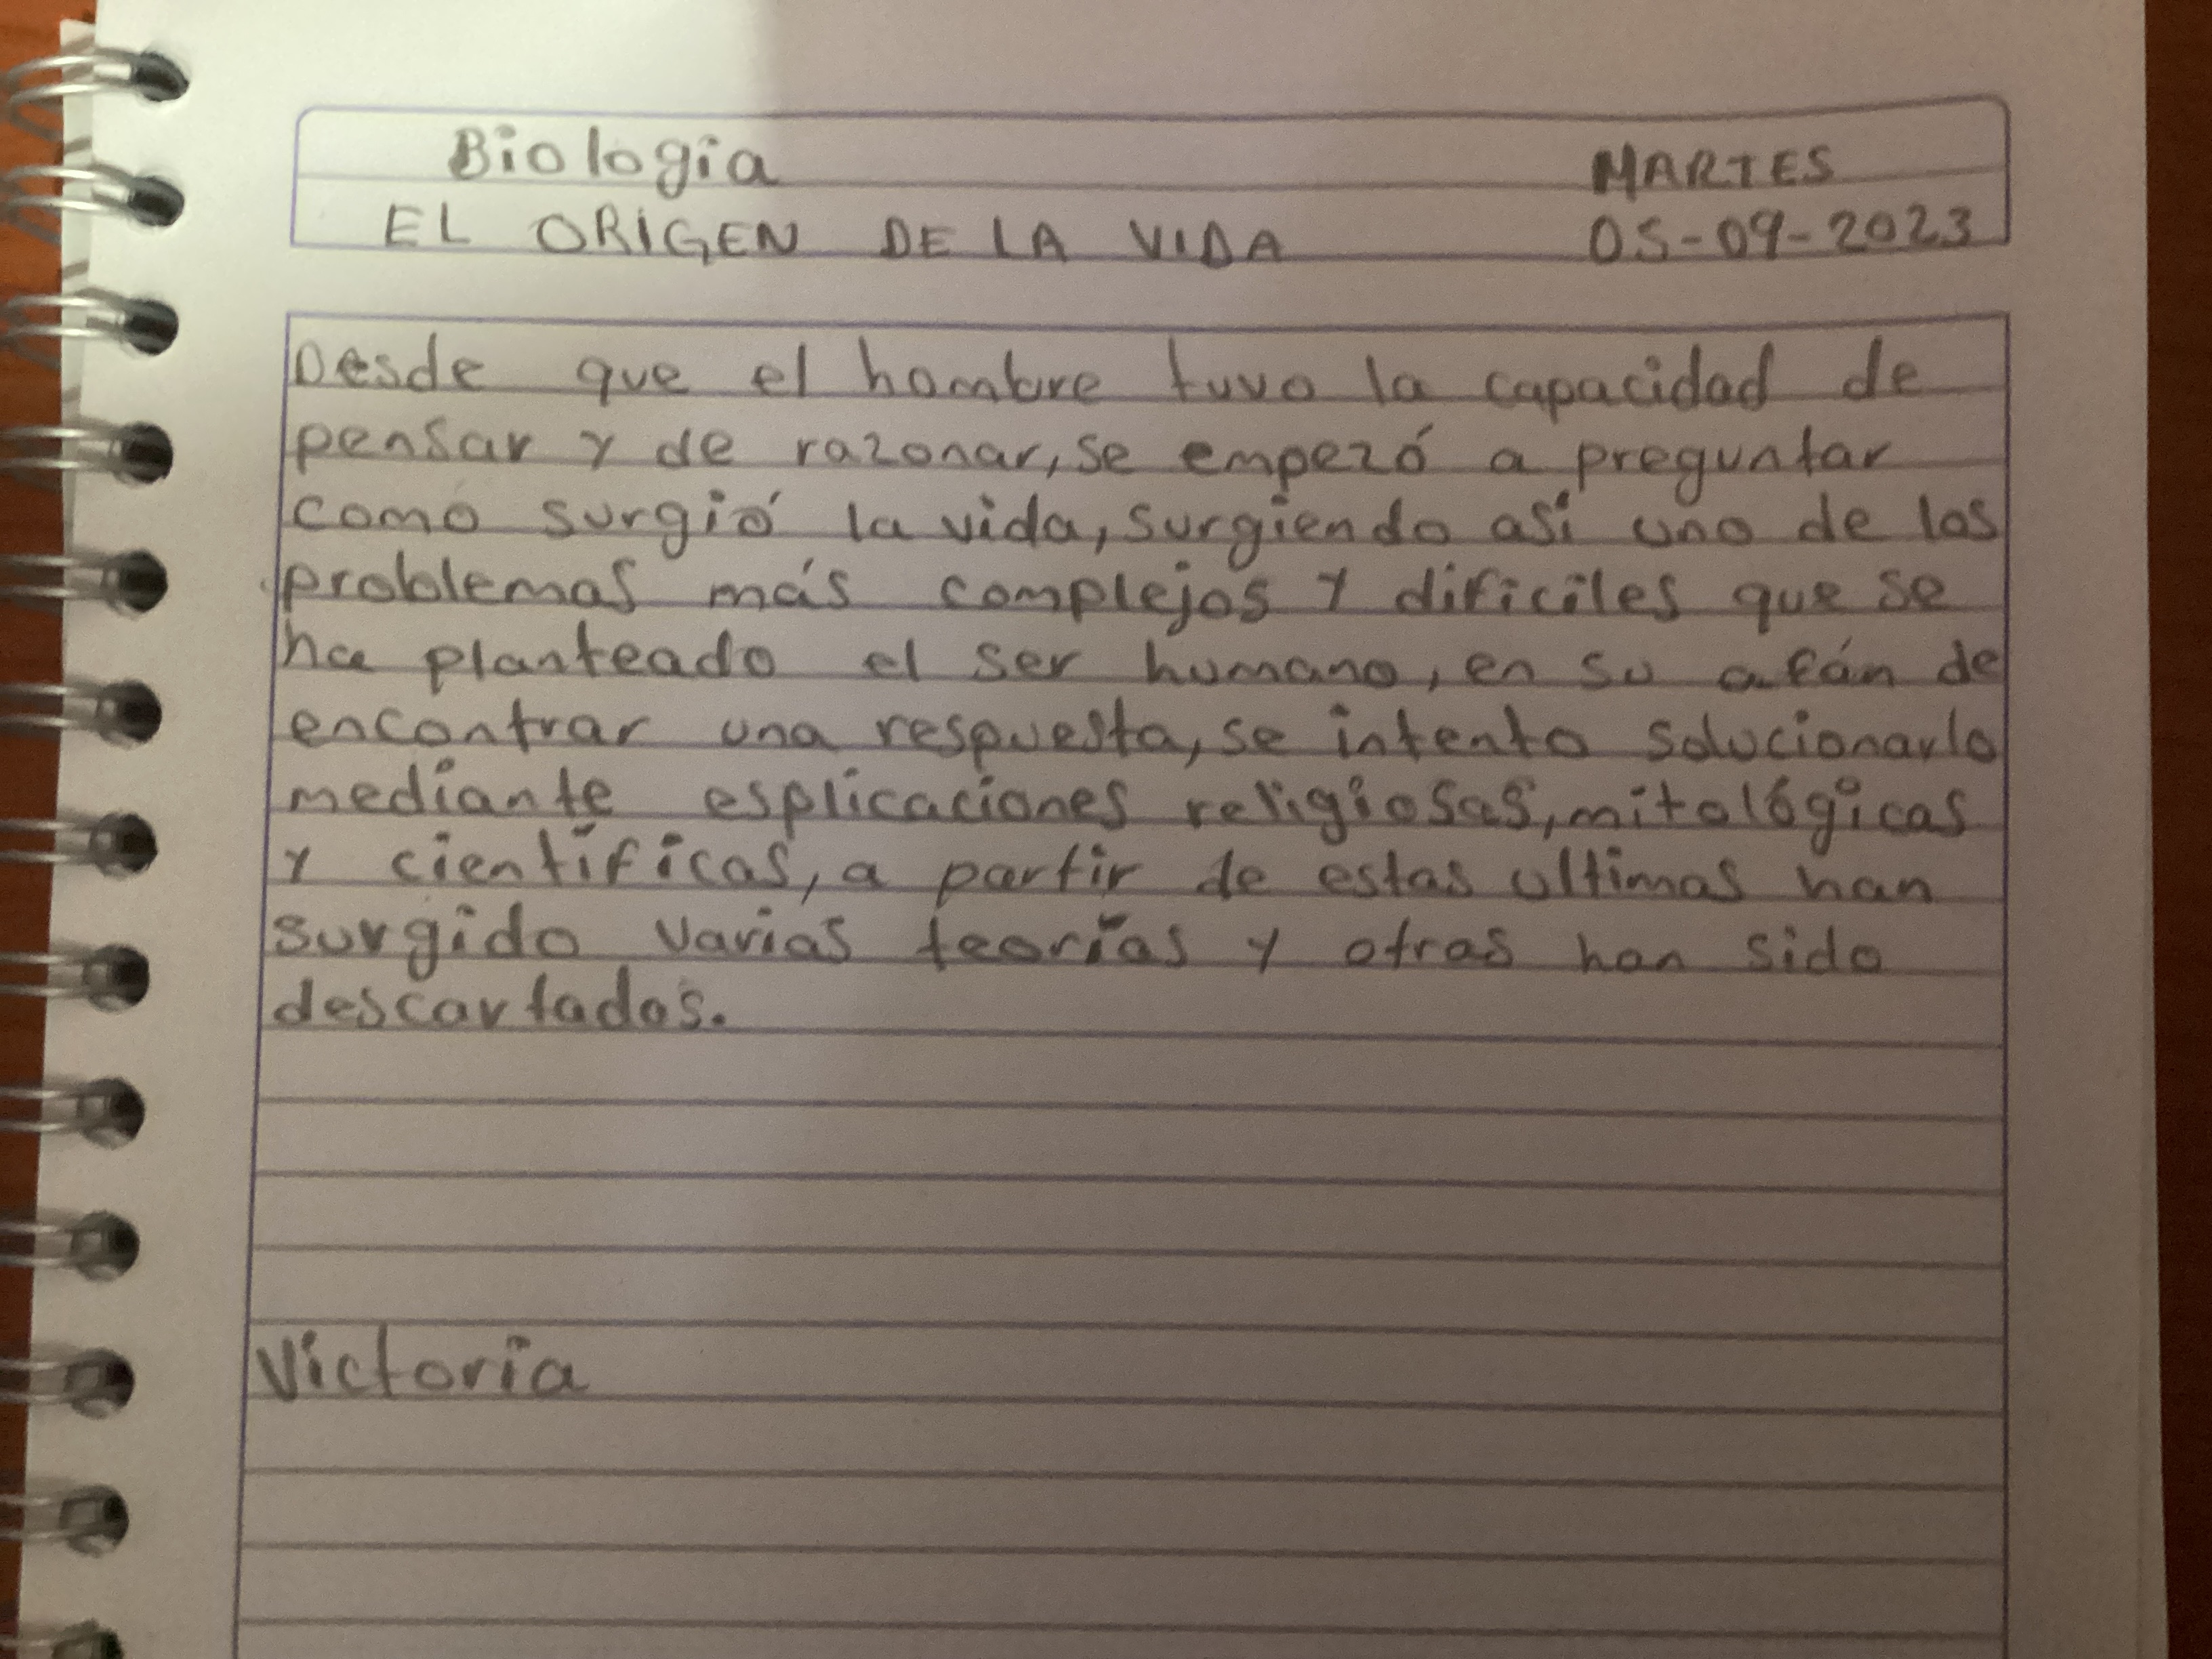 Biología MARTES
EL ORIGEN DE LA VIDA 05-09-2023
Desde que el hombre tuvo la capacidad de
pensar y de razonar, se empezó a preguntar
como surgió la vida, surgiendo así uno de los
problemas más complejos y dificiles que se
ha planteado el ser humano, en su afán de
encontrar una respuesta, se intento solucionarlo
mediante esplicaciones religiosas, mitológicas
y científicas, a partir de estas ultimas han
surgido varias teorías y otras han sido
descartados.
Victoria